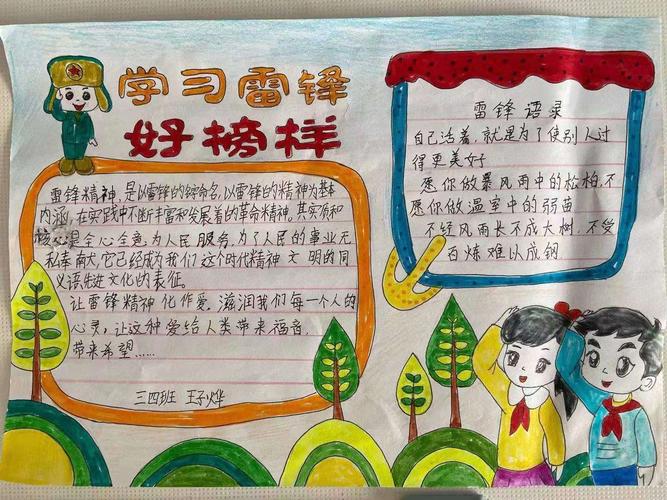 学习雷锋
好榜样
雷锋精神,是以雷锋的名命名,以雷锋的精神为基本
内涵,在实践中不断丰富和发展着的革命精神,其实质和
核心是全心全意为人民服务,为了人民的事业无
私奉献,它已经成为我们这个时代精神文明的同
义语先进文化的表征。
让雷锋精神化作爱,滋润我们每一个人的
心灵,让这种爱给人类带来福音,
带来希望……
三四班 王子烨
雷锋语录
自己活着,就是为了使别人过
得更美好
愿你做暴风雨中的松柏,不
愿你做温室中的弱苗
不经风雨长不成大树,不受
百炼难以成钢